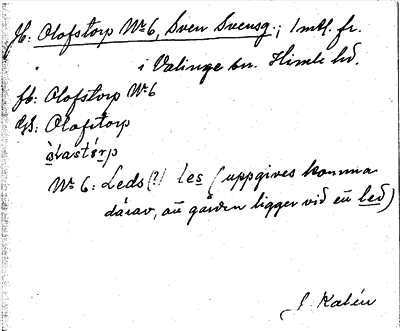 Jb: Olofstorp No 6, Sven Svensg.; 1 mtl. fr.
i Valinge sn. Himle hd.
fb: Olofstorp No 6
GS: Olofstorp
òlastórp
No 6: Leds (?) les (uppgives komma
därav, att gården ligger vid en led)
J. Kalén